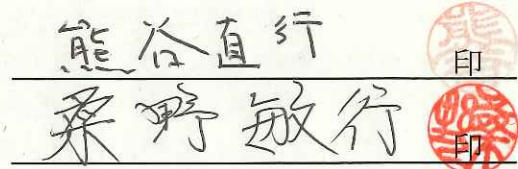 熊谷直行 印
桑野敏行 印